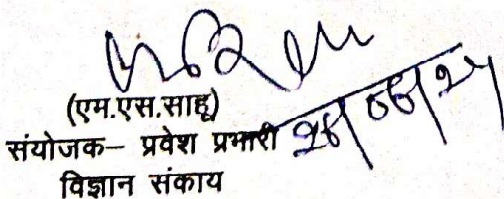 (एम.एस.साहू)
संयोजक– प्रवेश प्रभारी
विज्ञान संकाय